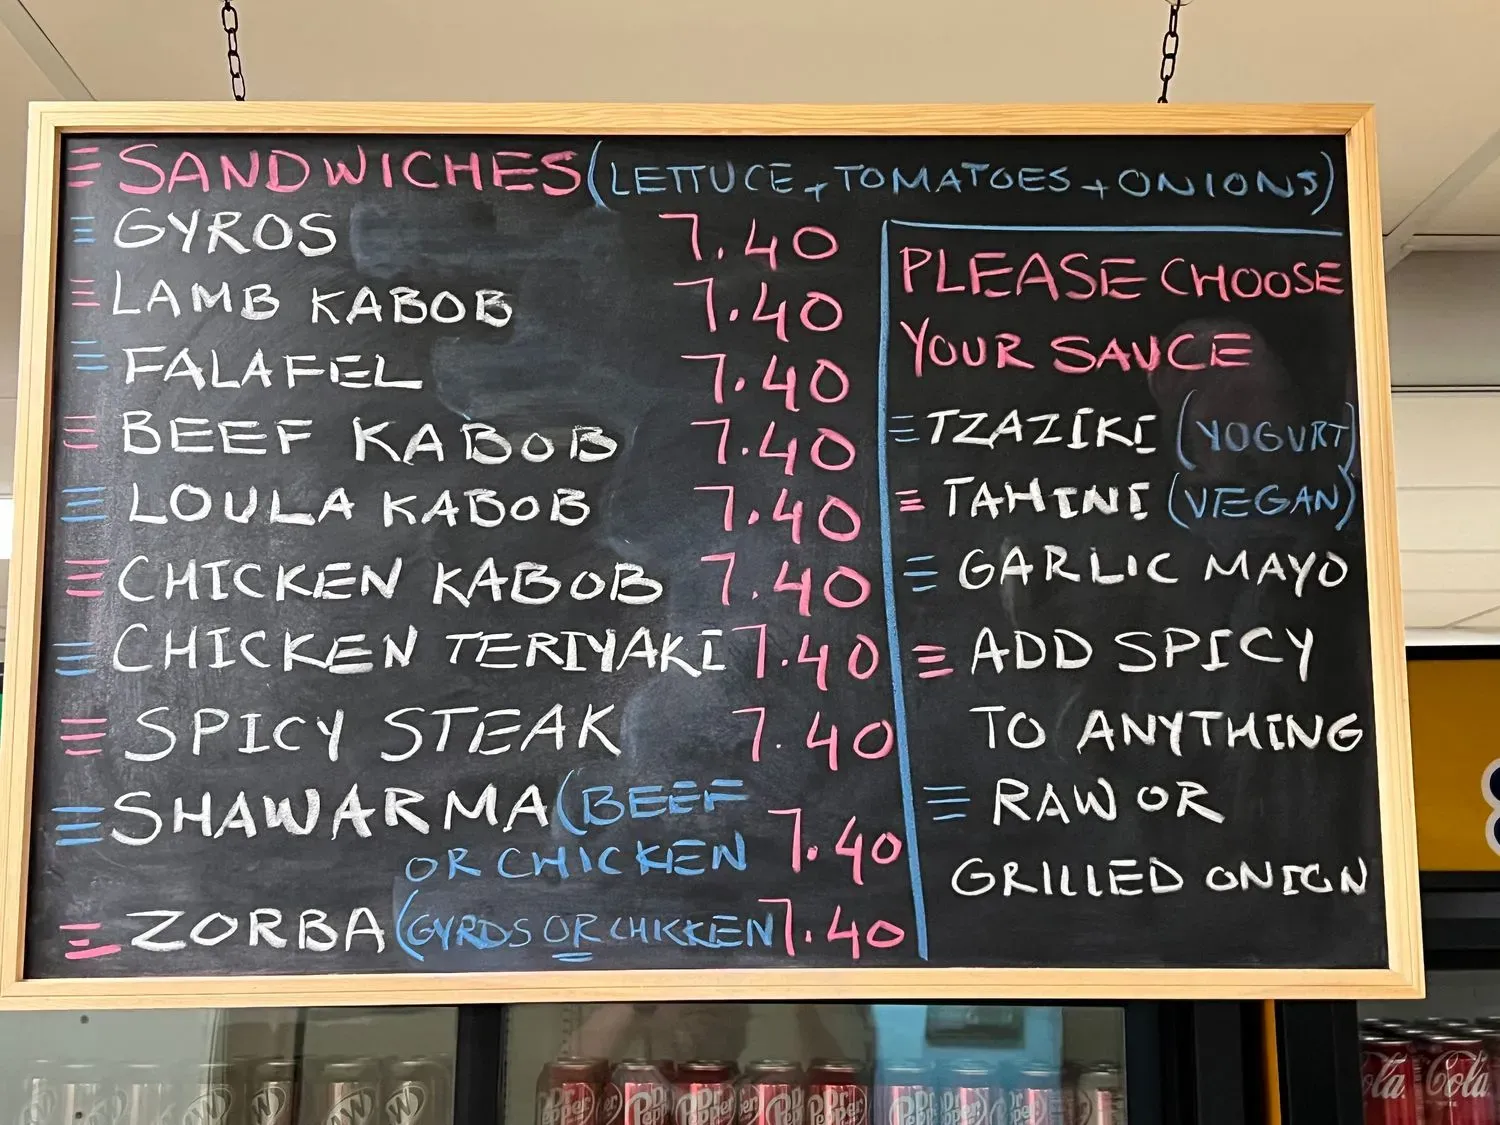 SANDWICHES (LETTUCE + TOMATOES + ONIONS)
GYROS 7.40
LAMB KABOB 7.40
FALAFEL 7.40
BEEF KABOB 7.40
LOULA KABOB 7.40
CHICKEN KABOB 7.40
CHICKEN TERIYAKI 7.40
SPICY STEAK 7.40
SHAWARMA (BEEF
OR CHICKEN 7.40
ZORBA (GYROS OR CHICKEN 7.40
PLEASE CHOOSE
YOUR SAUCE
TZAZIKI (YOGURT)
TAHINI (VEGAN)
GARLIC MAYO
ADD SPICY
TO ANYTHING
RAW OR
GRILLED ONION
Dr Pepper Dr Pepper Dr Pepper Dr Pepper
Cola